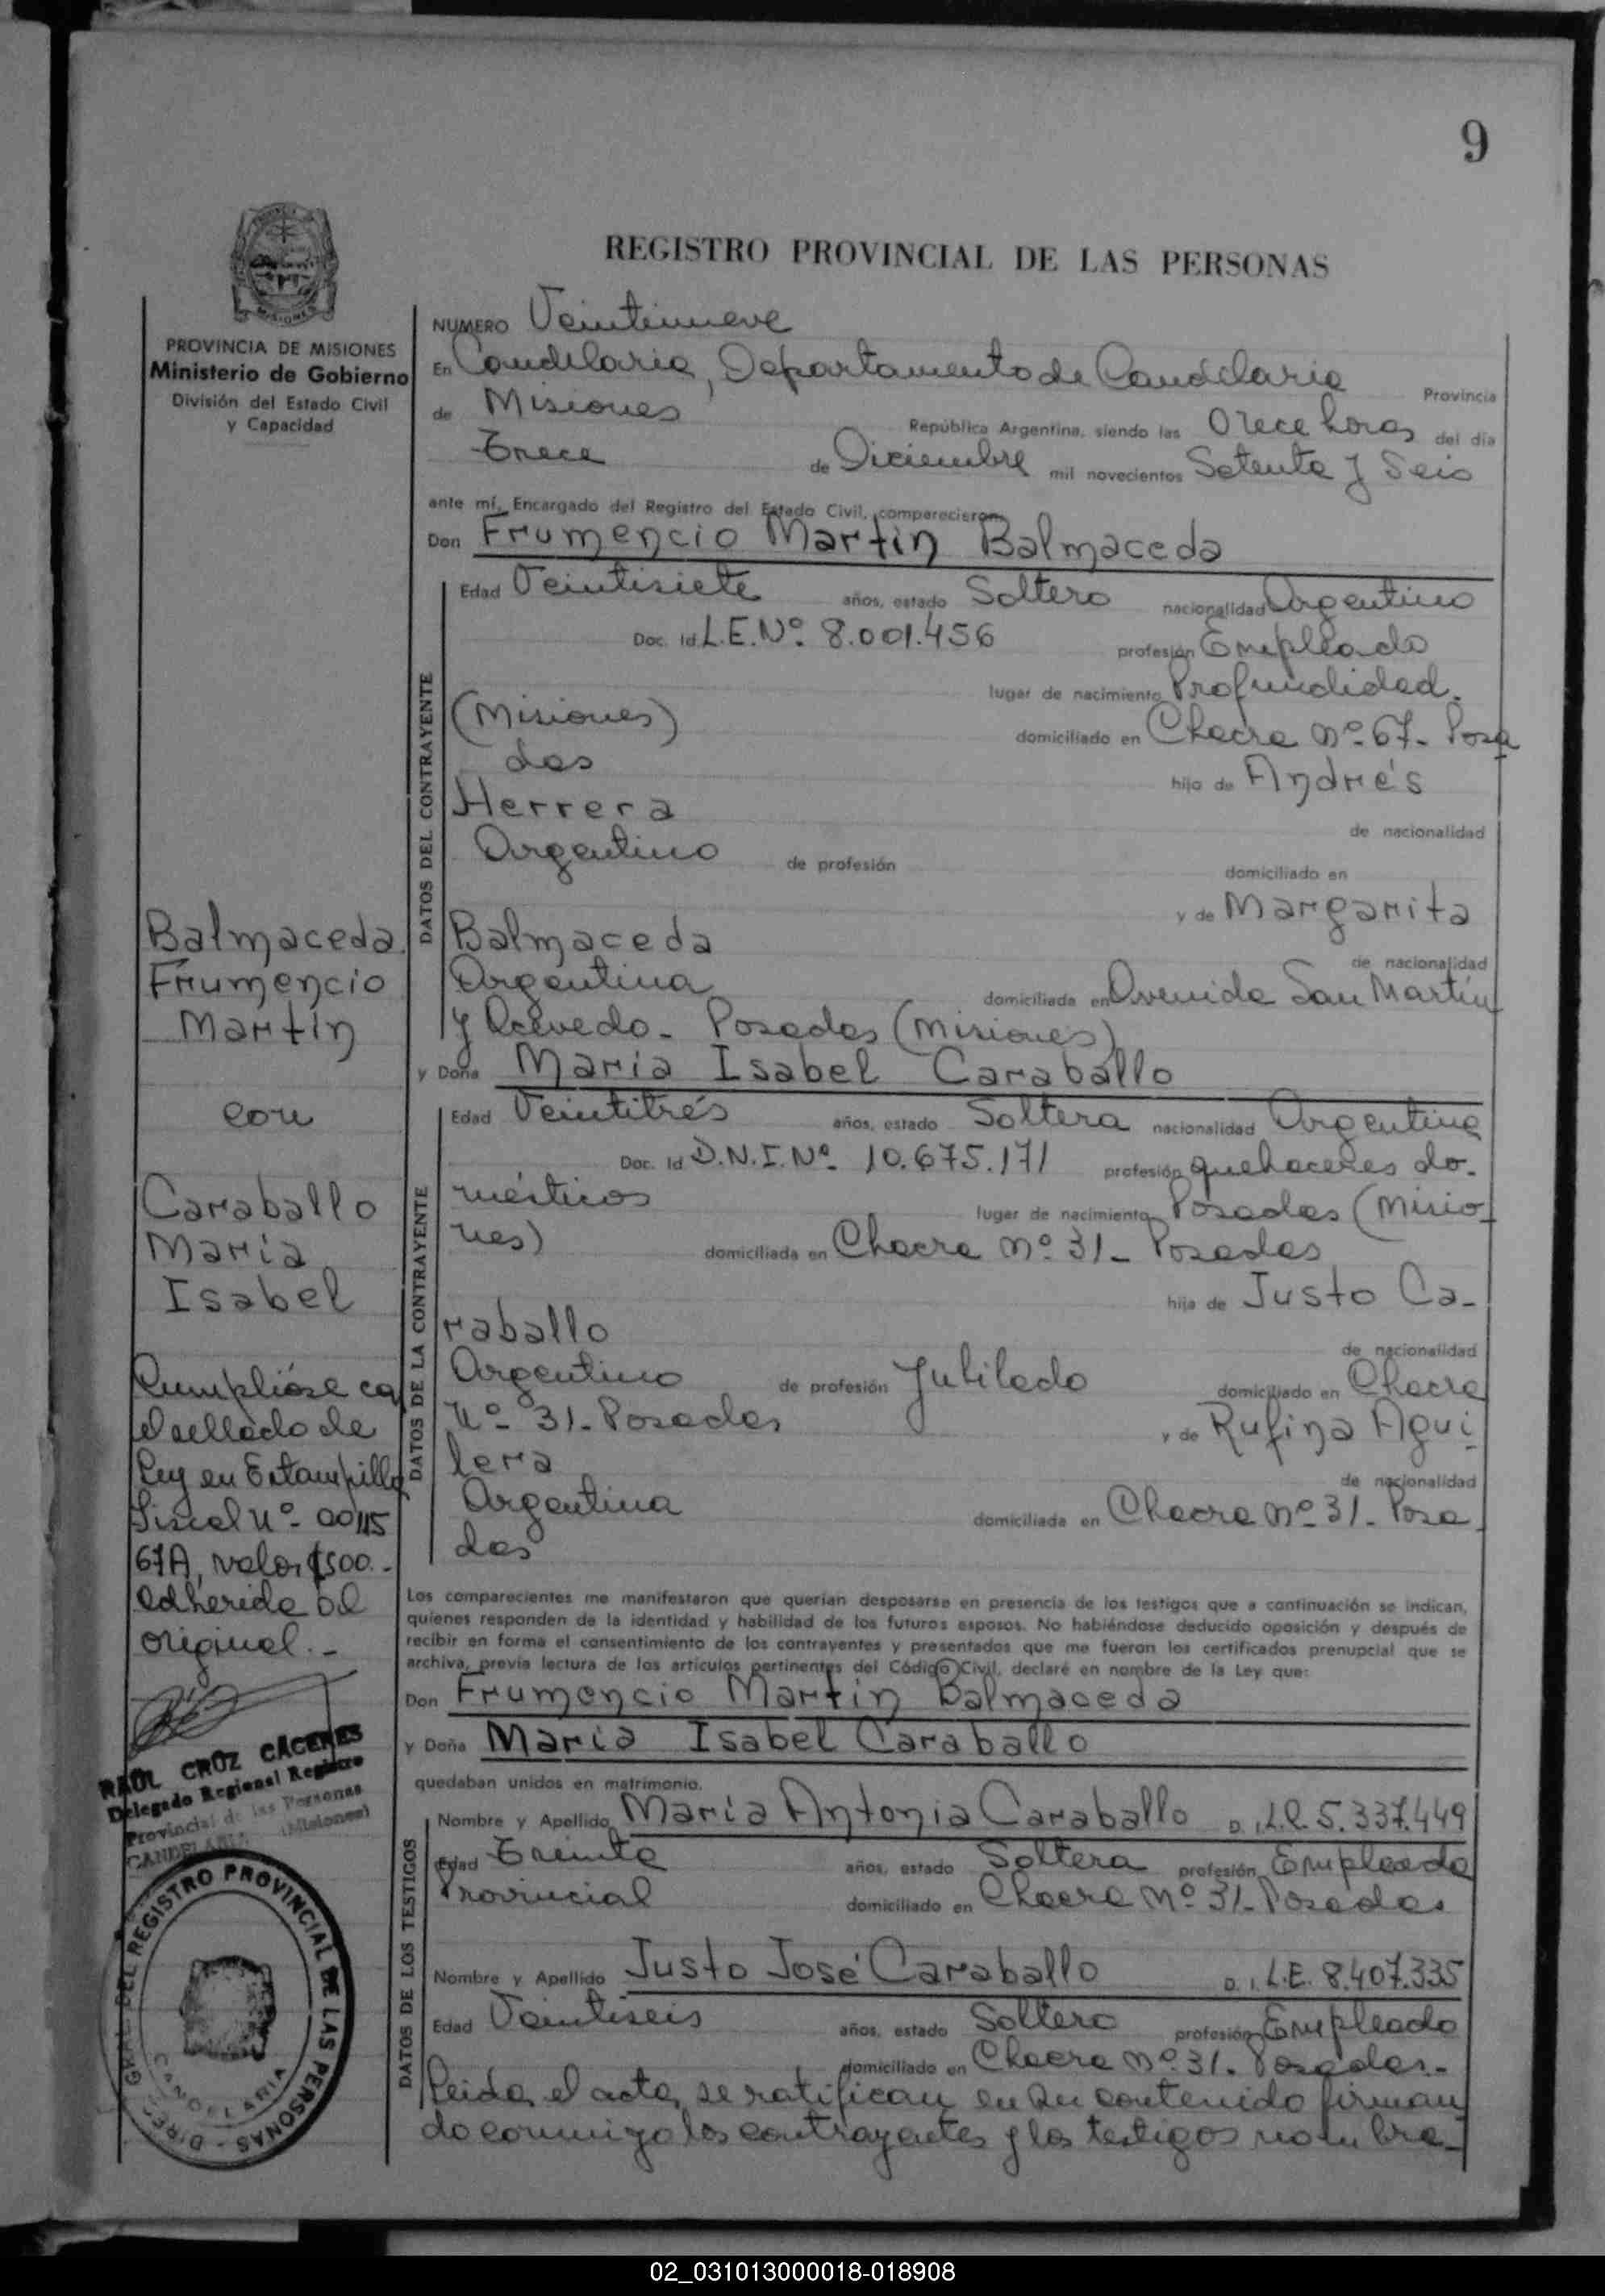 9
REGISTRO PROVINCIAL DE LAS PERSONAS
PROVINCIA DE MISIONES
Ministerio de Gobierno
División del Estado Civil
y Capacidad
NUMERO Veintinueve
En Candelaria, Departamento de Candelaria Provincia
de Misiones República Argentina, siendo las Trece horas del día
Trece de Diciembre mil novecientos Setenta y Seis
ante mí, Encargado del Registro del Estado Civil, comparecieron
Don Frumencio Martín Balmaceda
DATOS DEL CONTRAYENTE
Edad Veintisiete años, estado Soltero nacionalidad Argentino
Doc. Id L.E.Nº 8.001.456 profesión Empleado
lugar de nacimiento Profundidad.
(Misiones) domiciliado en Chacra Nº 67- Posa
das hijo de Andrés
Herrera de nacionalidad
Argentino de profesión domiciliado en
y de Margarita
Balmaceda de nacionalidad
Argentina domiciliada en Avenida San Martín
y Acevedo- Posadas (Misiones)
y Doña María Isabel Caraballo
DATOS DE LA CONTRAYENTE
Edad Veintitrés años, estado Soltera nacionalidad Argentina
Doc. Id D.N.I.Nº 10.675.171 profesión quehaceres do-
mésticos lugar de nacimiento Posadas (Misio-
nes) domiciliada en Chacra Nº 31- Posadas
hija de Justo Ca-
raballo de nacionalidad
Argentino de profesión Jubilado domiciliado en Chacra
Nº- 31- Posadas y de Rufina Agui-
lera de nacionalidad
Argentina domiciliada en Chacra Nº 31- Posa-
das
Los comparecientes me manifestaron que querían desposarse en presencia de los testigos que a continuación se indican,
quienes responden de la identidad y habilidad de los futuros esposos. No habiéndose deducido oposición y después de
recibir en forma el consentimiento de los contrayentes y presentados que me fueron los certificados prenupcial que se
archiva, previa lectura de los artículos pertinentes del Código Civil, declaré en nombre de la Ley que:
Don Frumencio Martín Balmaceda
y Doña María Isabel Caraballo
quedaban unidos en matrimonio.
DATOS DE LOS TESTIGOS
Nombre y Apellido María Antonia Caraballo D. I. L.C. 5.337.449
Edad Treinta años, estado Soltera profesión Empleada
Provincial domiciliado en Chacra Nº 31- Posadas
Nombre y Apellido Justo José Caraballo D. I. L.E. 8.407.335
Edad Veintiseis años, estado Soltero profesión Empleado
domiciliado en Chacra Nº 31- Posadas.-
Leída el acta, se ratifican en su contenido firman
do conmigo los contrayentes y los testigos nombra-
Balmaceda
Frumencio
Martín
con
Caraballo
María
Isabel
Cumplióse con
el sellado de
Ley en Estampilla
Fiscal Nº- 00115
67A, valor $500.-
adherida al
original.-
RAÚL CRUZ CÁCERES
Delegado Regional Registro
Provincial de las Personas
CANDELARIA (Misiones)
DIREC. GRAL. DEL REGISTRO PROVINCIAL DE LAS PERSONAS
CANDELARIA
02_031013000018-018908